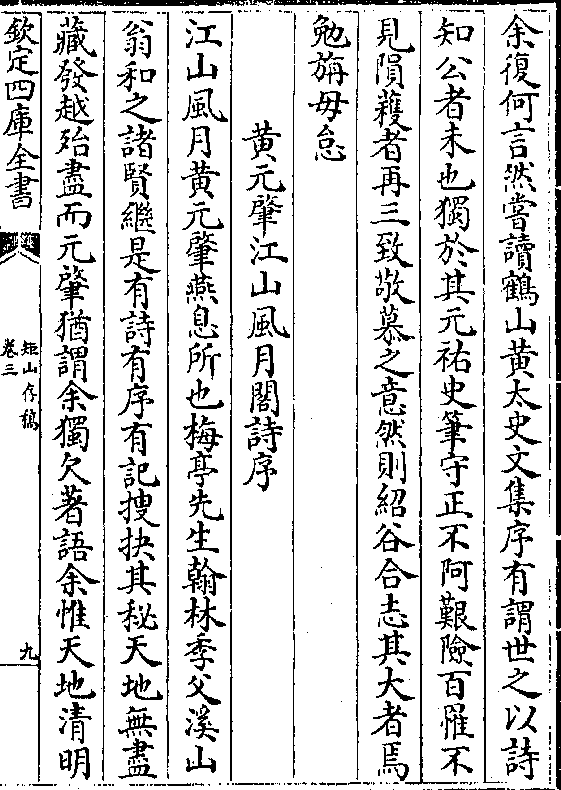 余復何言然嘗讀鶴山黄太史文集序有謂世之以詩
知公者未也獨於其元祐史筆守正不阿艱險百罹不
見隕穫者再三致敬慕之意然則紹谷合志其大者焉
勉旃毋怠
黄元肇江山風月閣詩序
江山風月黄元肇燕息所也梅亭先生翰林季父溪山
翁和之諸賢繼是有詩有序有記搜抉其秘天地無盡
藏發越殆盡而元肇猶謂余獨欠著語余惟天地清明
欽定四庫全書
矩山存稿
卷三
九